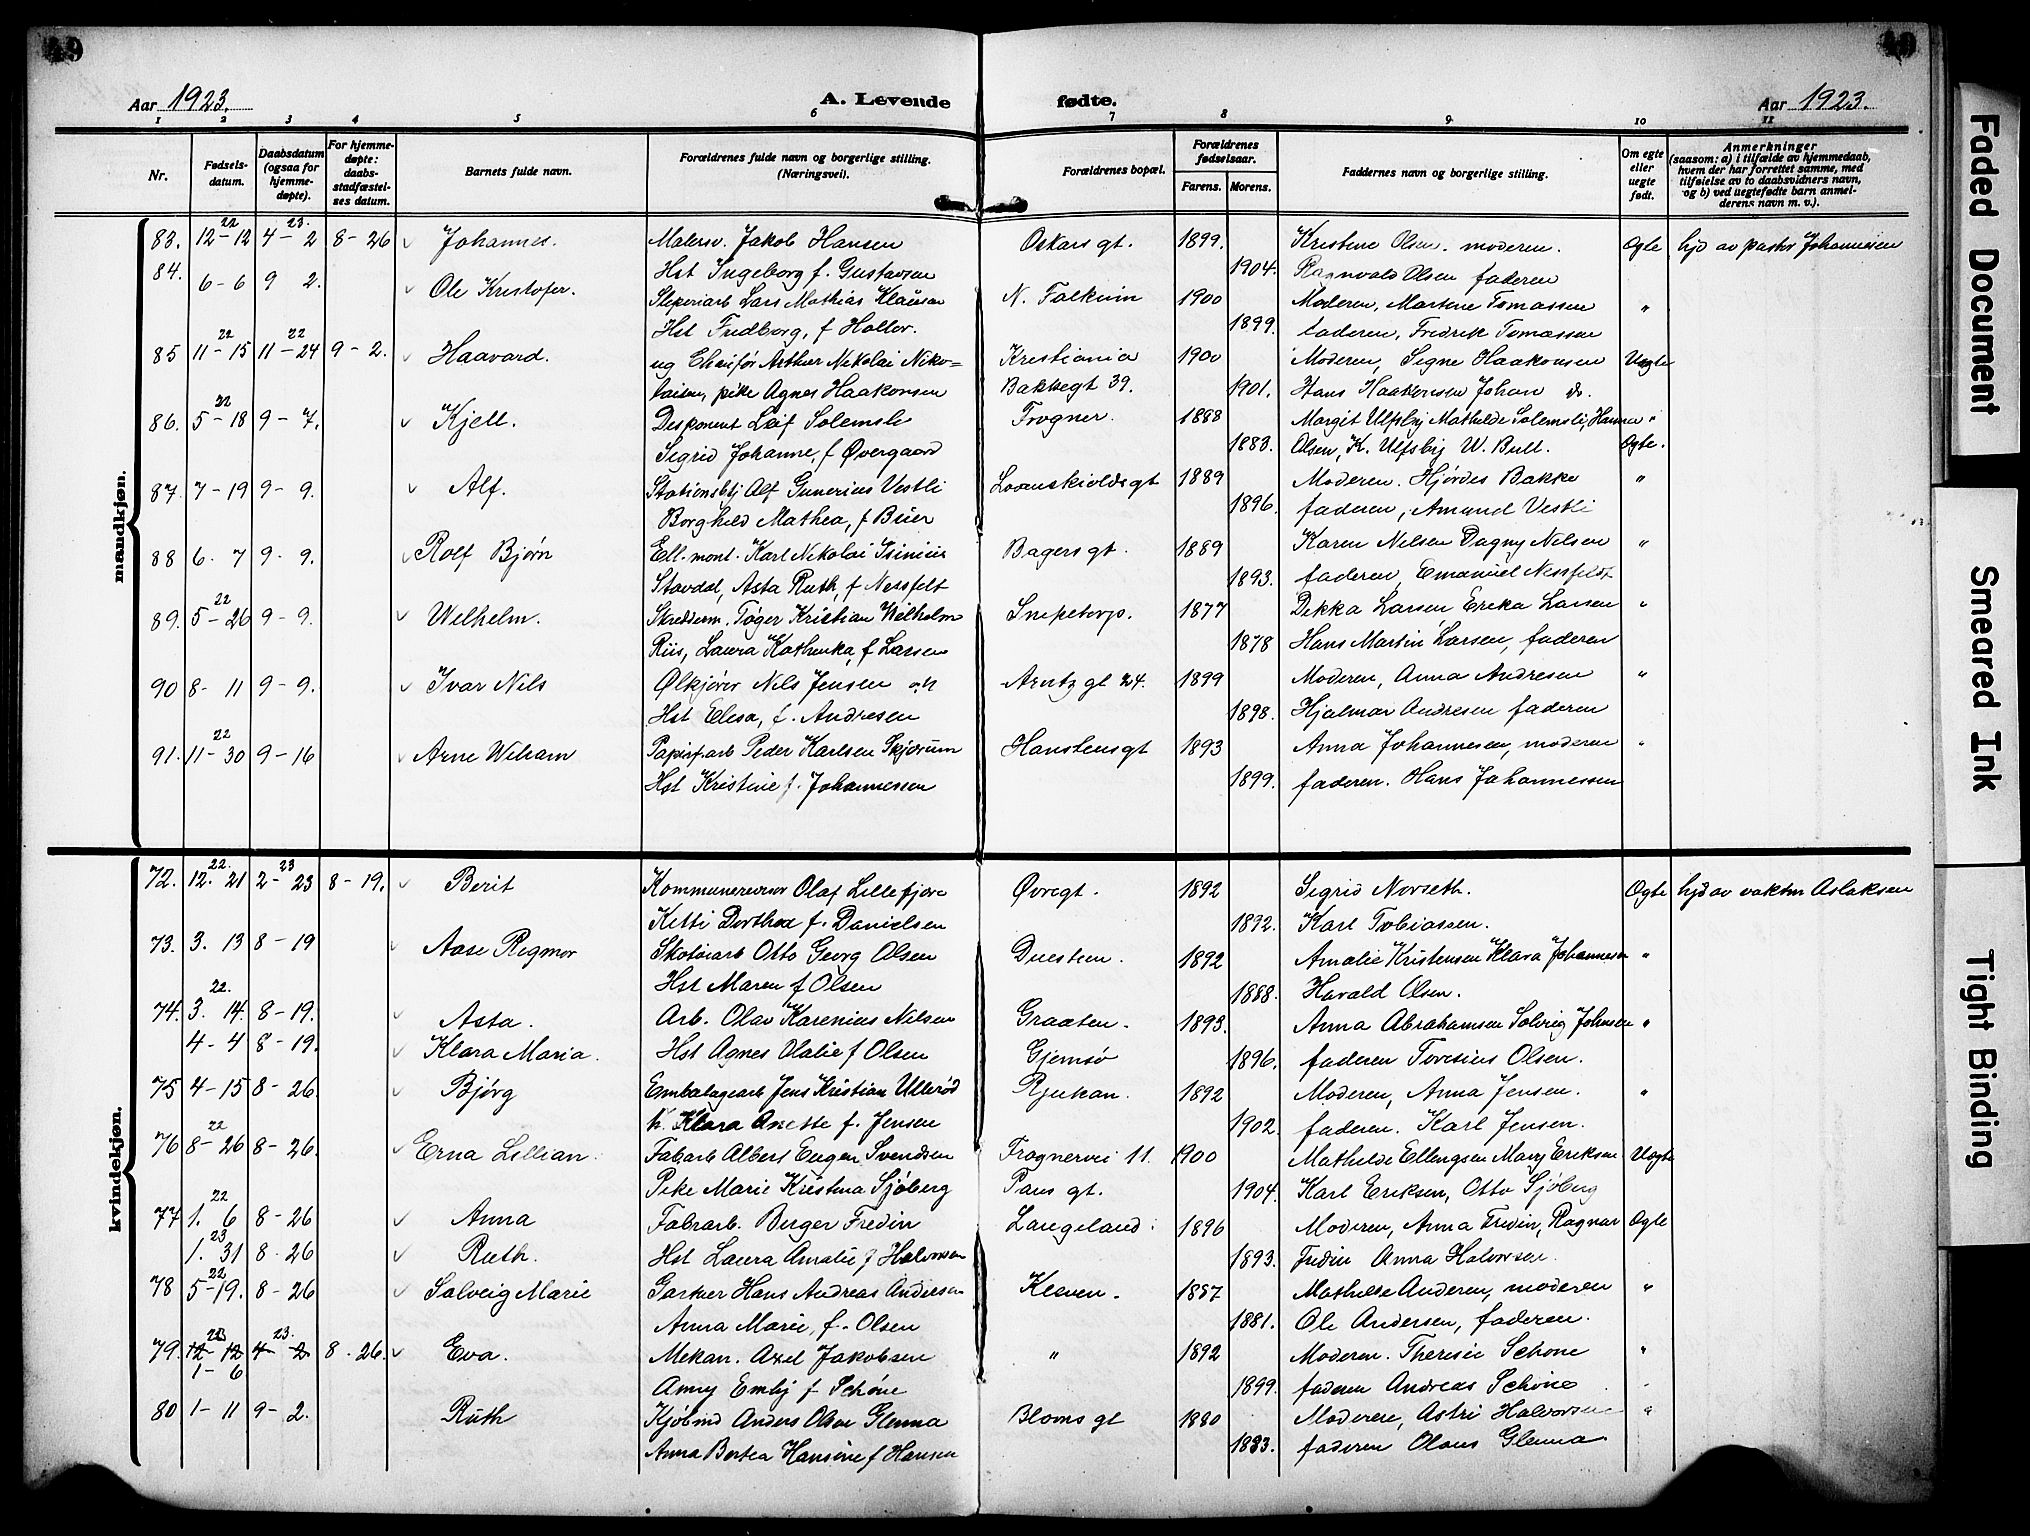 49
49
Aar 1923.
A. Levende
fødte.
Aar 1923.
1 2 3 4 5 6 7 8 9 10 11
Nr.
Fødsels-
datum.
Daabsdatum
(ogsaa for
hjemme-
døpte).
For hjemme-
døpte:
daabs-
stadfæstel-
ses datum.
Barnets fulde navn.
Forældrenes fulde navn og borgerlige stilling.
(Næringsvei).
Forældrenes bopæl.
Forældrenes
fødselsaar.
Farens. Morens.
Faddernes navn og borgerlige stilling.
Om egte
eller
uegte
født.
Anmerkninger
(saasom: a) i tilfælde av hjemmedaab,
hvem der har forrettet samme, med
tilføielse av to daabsvidners navn,
og b) ved uegtefødte barn anmel-
derens navn m. v.).
mandkjøn.
22 23.
83. 12-12 4-2 8-26 Johannes. Malersv. Jakob Hansen Oskars gt. 1899. Kristine Olsen. moderen. Ogte hjd av pastor Johannesen
Hst Ingeborg f. Gustavsen 1904. Ragnvald Olsen faderen
84. 6-6 9 2. Ole Kristofer. Sliperiarb Lars Mathias Klausen N. Falkum 1900 Moderen, Martine Tomassen "
Hst Fredborg, f Holler. 1899. faderen, Fredrik Tomassen
22 22
85 11-15 11-24 9-2. Haavard. ug Chaifør Arthur Nikolai Niko= Kristiania 1900 Moderen, Signe Haakonsen Uegte
laisen, pike Agnes Haakonsen Bakkegt 39. 1901. Hans Haakonsen Johan do.
22
86. 5-18 9-7. Kjell. Disponent Leif Solemsli Frogner. 1888 Margit Ulfsby Mathilde Solemsli, Hanna "
Sigrid Johanne, f Øvergaard 1883. Olsen, K. Ulfsby W. Bull. Ogte.
87. 7-19 9-9. Alf. Stationsbtj Alf Gunerius Vestli Lovenskioldsgt 1889 Moderen. Hjørdis Bakke "
Borghild Mathea, f Büer 1896. faderen, Amund Vestli
88 6. 7 9-9. Rolf Bjørn Ell. mont. Karl Nikolai Isinius Bagers gt. 1889 Karen Nilsen Dagny Nilsen "
Stavdal, Asta Ruth, f Nessfelt 1893. faderen, Emanuel Nessfeldt
22
89. 5-26 9-9. Wilhelm. Skredderm. Tøger Kristian Wilhelm Snipetorp. 1877 Dikka Larsen Erika Larsen "
Riis, Laura Kathinka, f Larsen 1878 Hans Martin Larsen, faderen
90 8-11 9-9. Ivar Nils Ølkjører Nils Jensen og Arntz gt 24. 1899 Moderen, Anna Andresen "
Hst Elisa, f. Andresen 1898. Hjalmar Andresen faderen
22
91. 11-30 9-16 Arne William Papirf.arb Peder Karlsen Skjørum Hanstensgt 1893 Anna Johannesen, moderen "
Hst Kristine f. Johannessen 1899. faderen. Hans Johannessen
kvindekjøn.
22. 23
72. 12. 21 2-23 8-19. Berit Kommunerevisor Olaf Lillefjære Øvregt. 1892 Sigrid Norseth. Ogte hjd av vaktm Aslaksen
Kitti Dorthea f. Danielsen 1892. Karl Tobiassen.
73. 3. 13 8-19 Aase Rigmor Skotøiarb Otto Georg Olsen Duestien. 1892 Amalie Kristensen Klara Johannesen "
Hst Maren f Olsen 1888. Harald Olsen.
22.
74. 3. 14. 8-19. Asta. Arb. Olav Karenius Nilsen Graaten. 1893. Anna Abrahamsen Solveig Johnsen "
4-4 8-19. Klara Maria. Hst Agnes Otalie f Olsen Gjemsø 1896. faderen Toresius Olsen.
75 4-15 8-26. Bjørg Embalagearb Jens Kristian Ullerød Rjukan. 1892 Moderen, Anna Jensen. "
h. Klara Anette f. Jensen 1902. faderen. Karl Jensen.
22
76 8-26 8-26. Erna Lillian. Fabarb Albert Eugen Svendsen Frognervei 11. 1900 Mathilde Ellengsen Mary Eriksen Uegte
Pike Marie Kristina Sjøberg Paus gt. 1904. Karl Eriksen, Otto Sjøberg
22
77 1. 6 8-26 Anna Fabrarb. Birger Fredin Langeland. 1896 Moderen, Anna Fredin, Ragnar Ogte
23
1. 31 8-26 Ruth. Hst Laura Amalie f Halvorsen 1893. Fredin Anna Halvorsen.
22
78 5-19. 8-26 Solveig Marie Gartner Hans Andreas Andersen Kleven. 1857 Mathilde Anderen, moderen "
Anna Marie, f. Olsen 1881. Ole Andersen, faderen.
23 23.
79. 12-12 4-2 8-26. Eva. Mekan. Axel Jakobsen " 1892 Moderen. Therese Schøne "
1-6
Anny Emly f Schøne 1899. faderen Andreas Schøne
80 1-11 9-2. Ruth Kjøbmd Anders Olsen Glenna Bloms gt 1880 Moderen, Astri Halvorsen "
Anna Bertea Hansine f Hansen 1883. faderen Olaus Glenna
Faded Document
Smeared Ink
Tight Binding